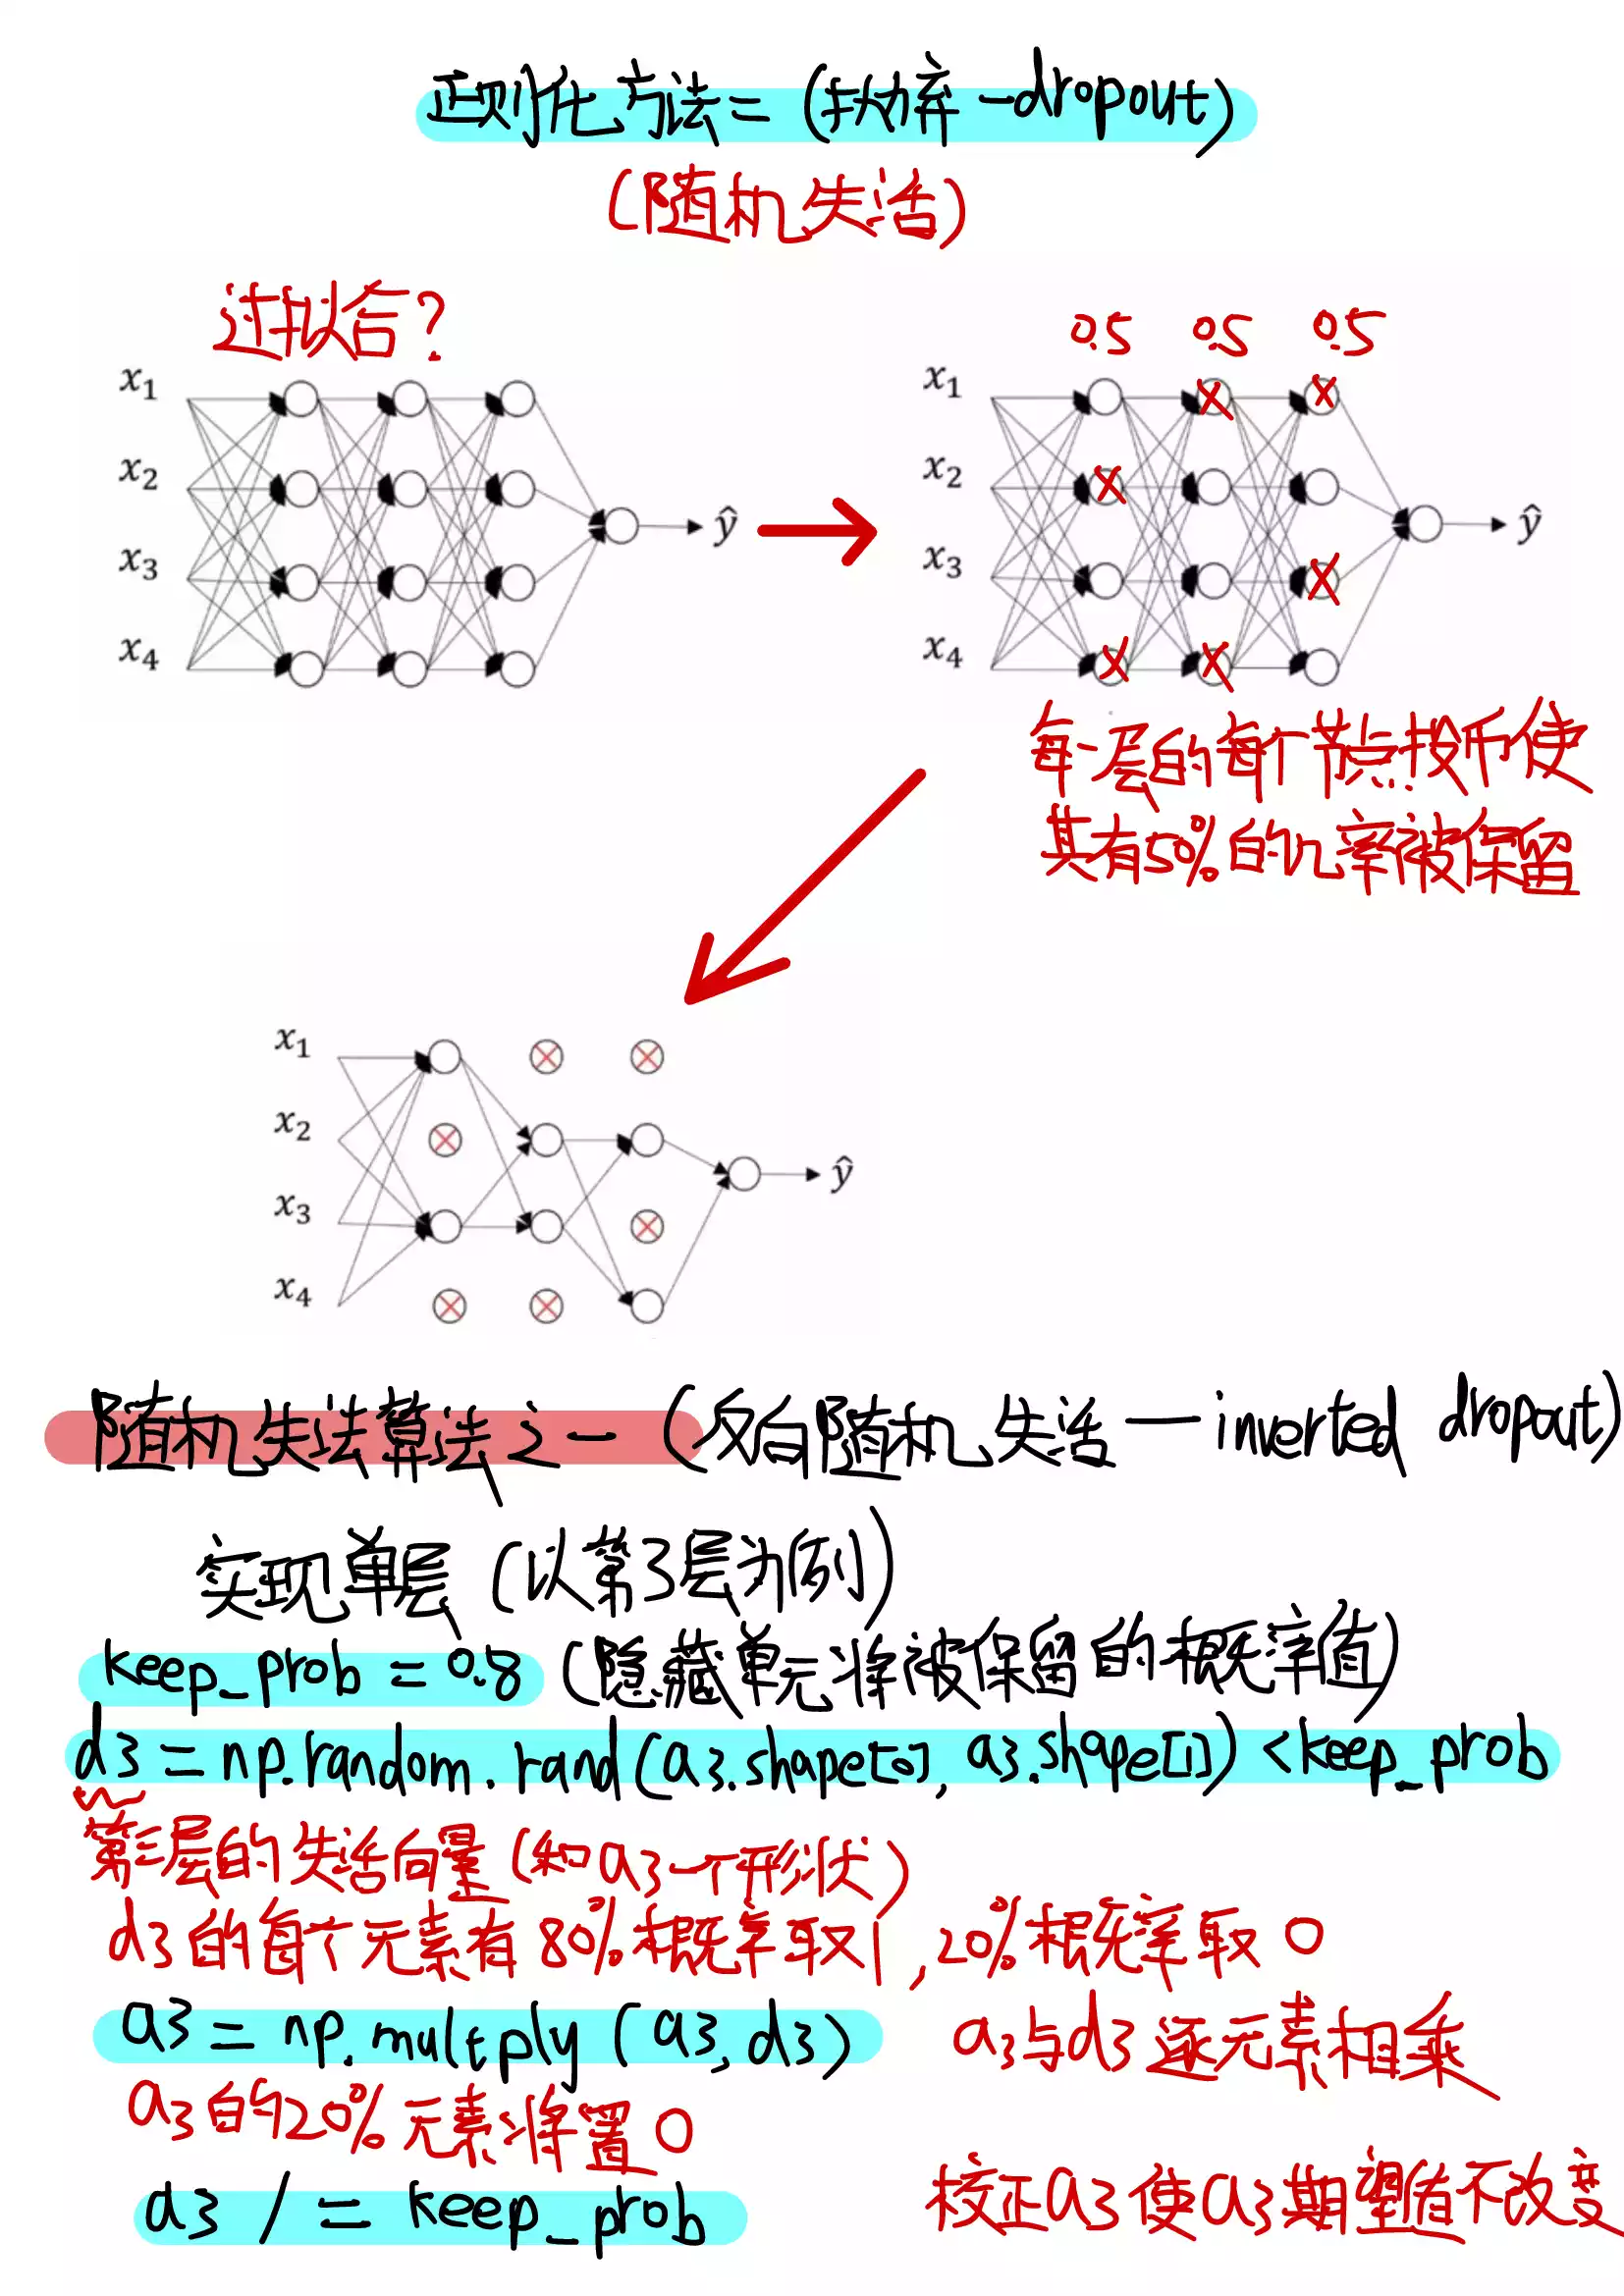 正则化方法二(抛弃-dropout)
(随机失活)
过拟合?
x1
x2
x3
x4
ŷ
0.5 0.5 0.5
x1
x2
x3
x4
ŷ
每一层的每个节点投币使
其有50%的几率被保留
x1
x2
x3
x4
ŷ
随机失活算法之一(反向随机失活—inverted dropout)
实现单层(以第3层为例)
keep_prob = 0.8 (隐藏单元将被保留的概率值)
d3 = np.random.rand(a3.shape[0], a3.shape[1]) < keep_prob
第三层的失活向量(和a3一个形状)
d3的每个元素有80%概率取1,20%概率取0
a3 = np.multply(a3, d3) a3与d3逐元素相乘
a3的20%元素将置0
a3 /= keep_prob 校正a3使a3期望值不改变